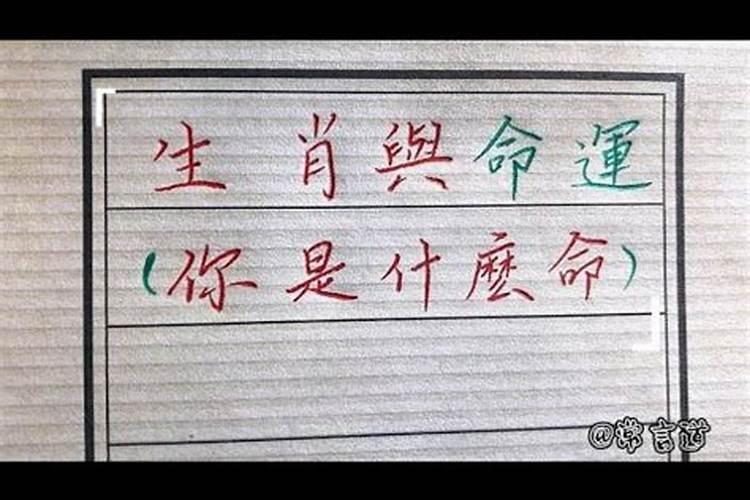 生肖與命運
(你是什麼命)
@常言道